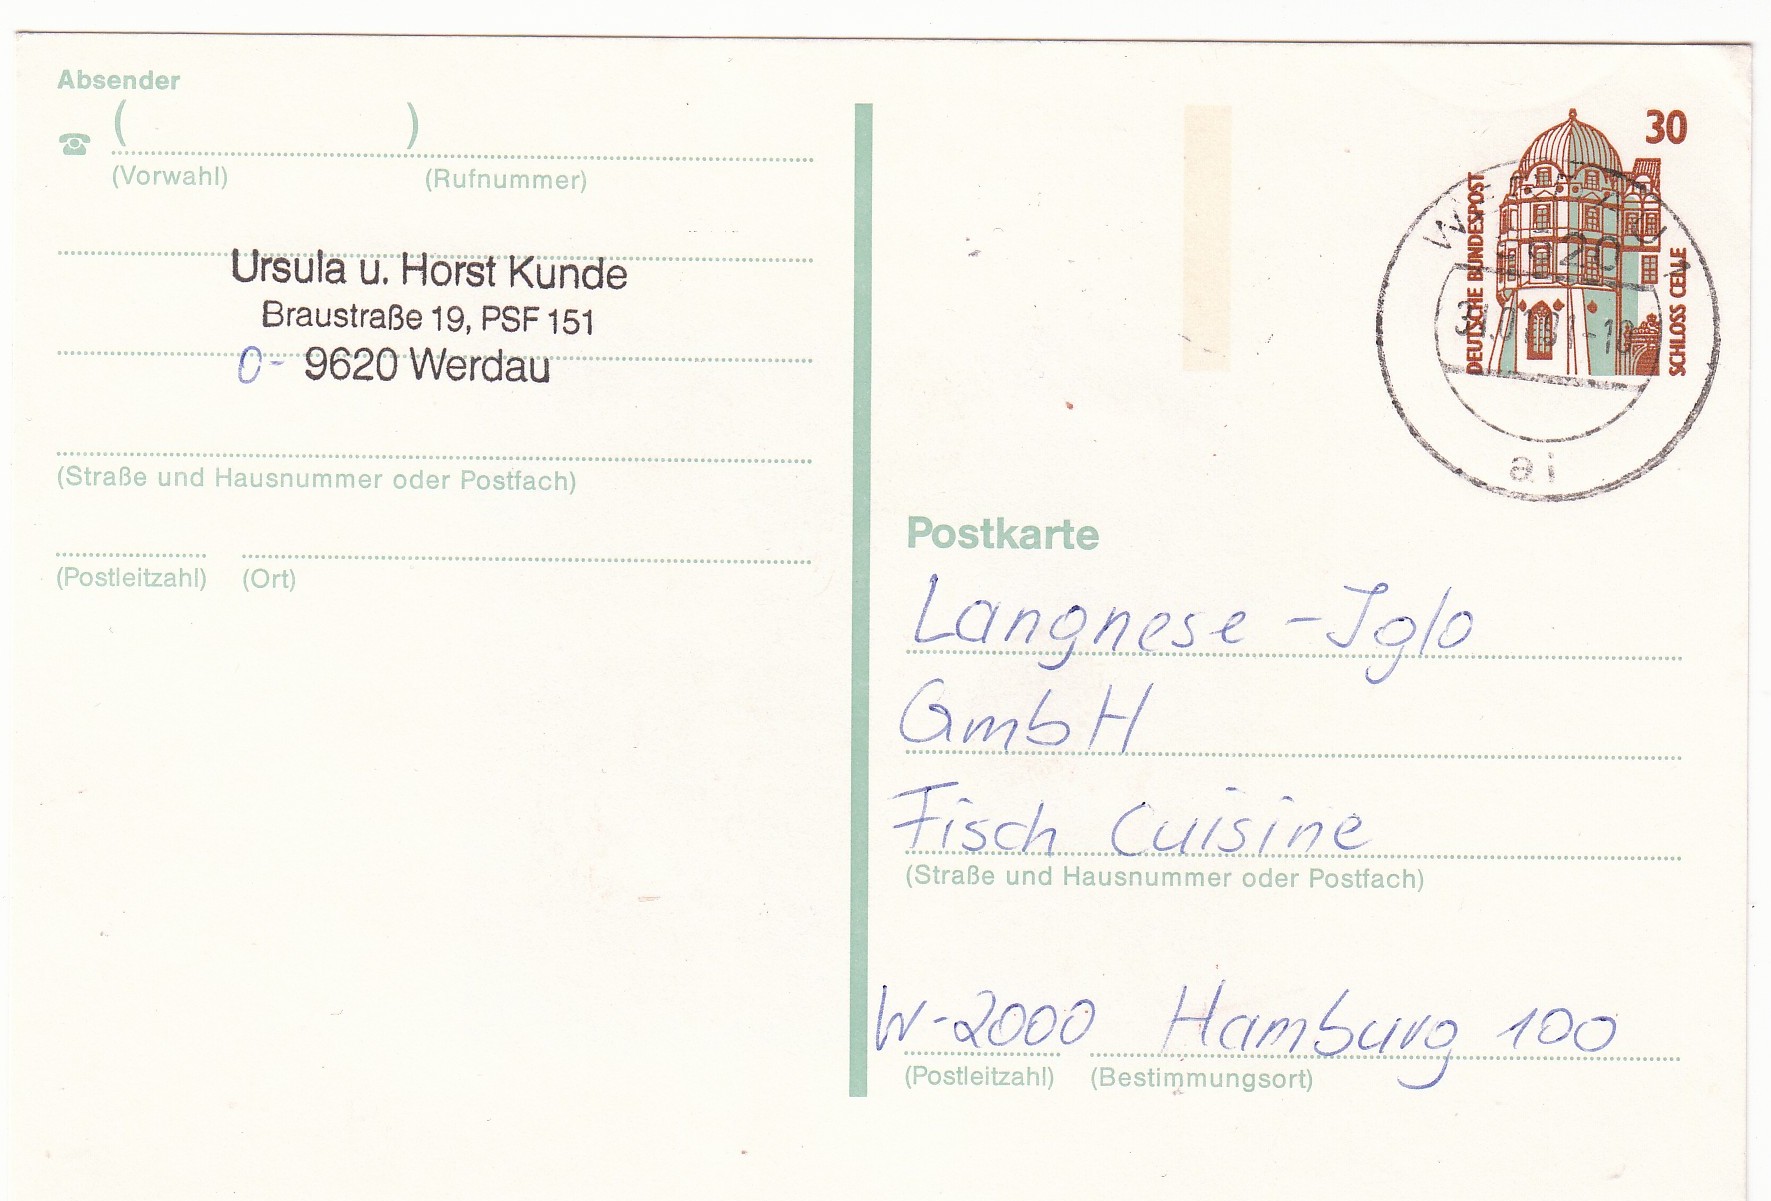 Absender
( )
(Vorwahl) (Rufnummer)
Ursula u. Horst Kunde
Braustraße 19, PSF 151
O- 9620 Werdau
(Straße und Hausnummer oder Postfach)
(Postleitzahl) (Ort)
30
DEUTSCHE BUNDESPOST
SCHLOSS CELLE
WERDAU 1
9620
ai
Postkarte
Langnese-Iglo
GmbH
Fisch Cuisine
(Straße und Hausnummer oder Postfach)
W-2000 Hamburg 100
(Postleitzahl) (Bestimmungsort)